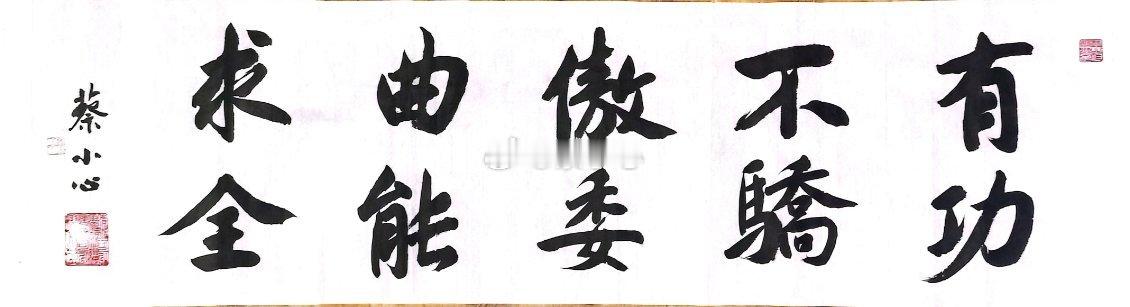 有功
不驕
傲委
曲能
求全
蔡小心